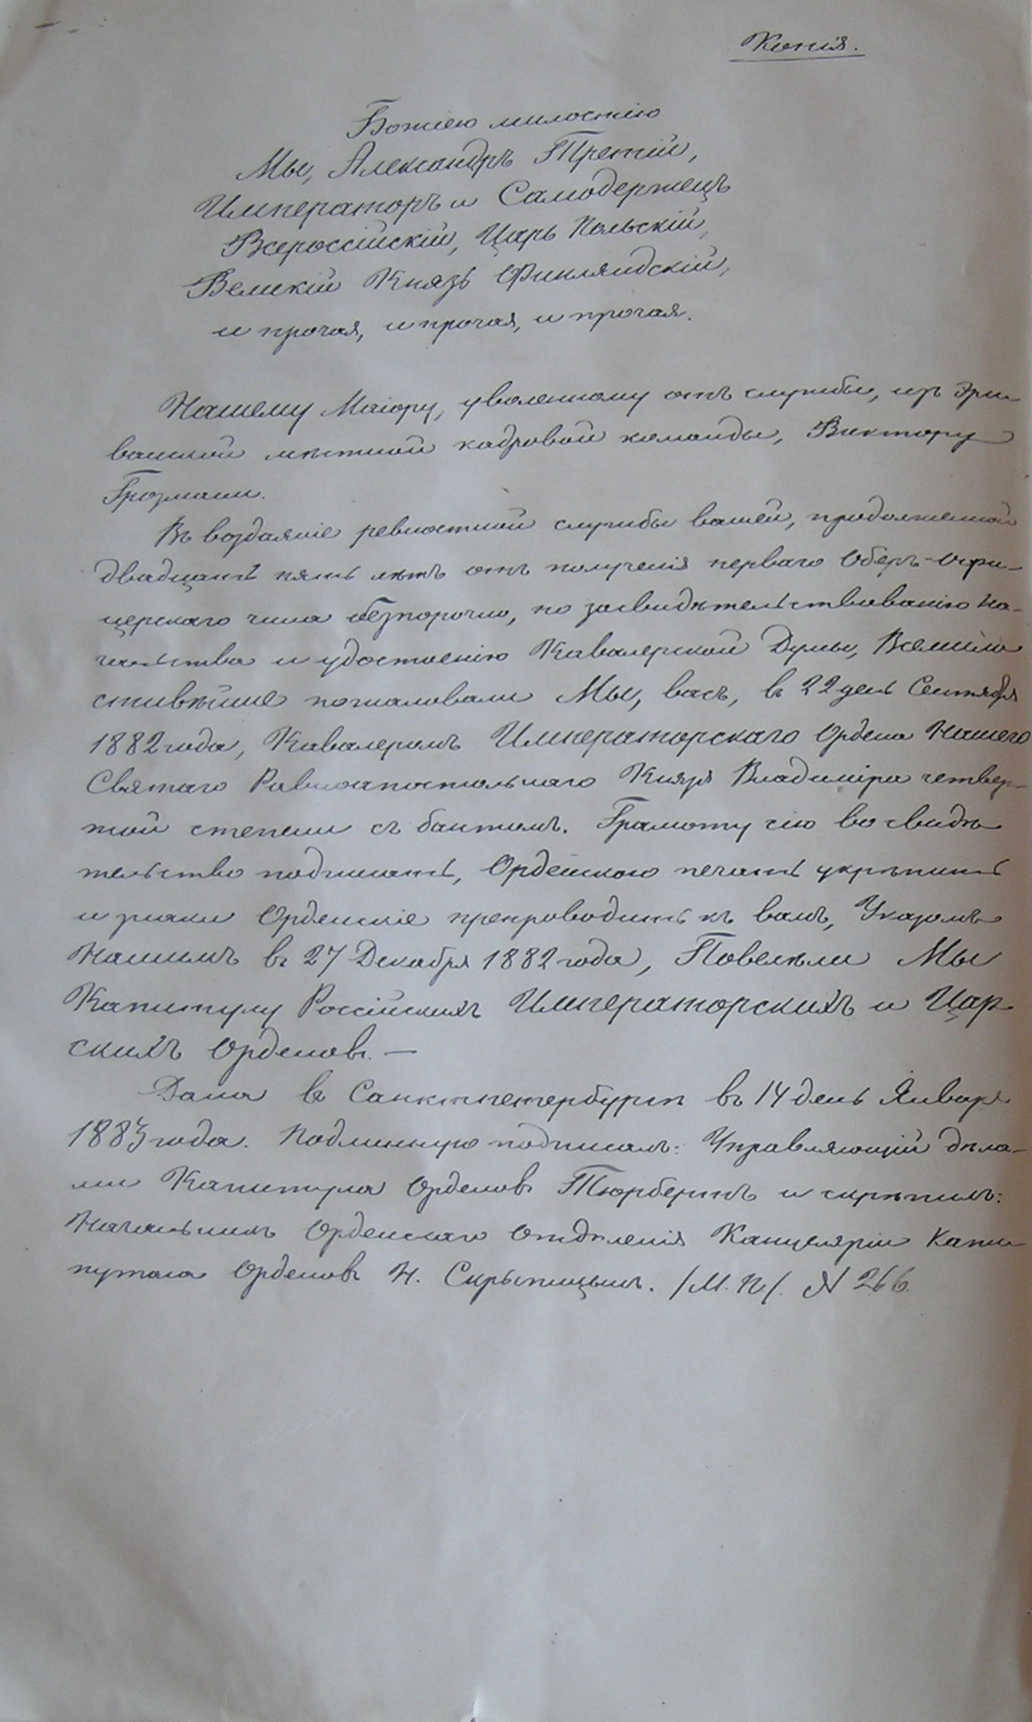 Копія.
Божіею милостію
Мы, Александръ Третій,
Императоръ и Самодержецъ
Всероссійскій, Царь Польскій,
Великій Князь Финляндскій,
и прочая, и прочая, и прочая.
Нашему Маіору, уволенному отъ службы, изъ Эри-
ванской мѣстной кадровой команды, Виктору
Грозманн.
Въ воздаяніе ревностной службы вашей, продолженной
двадцать пять лѣтъ отъ полученія перваго Оберъ-офи-
церскаго чина безпорочно, по засвидѣтельствованію на-
чальства и удостоенію Кавалерской Думы, Всемило
стивѣйше пожаловали Мы, васъ, въ 22 день Сентября
1882 года, Кавалеромъ Императорскаго Ордена Нашего
Святаго Равноапостольнаго Князя Владиміра четвер-
той степени съ бантомъ. Грамоту сію во свидѣ
тельство подписать, Орденскою печать укрѣпить
и знаки Орденскіе препроводить къ вамъ, Указомъ
Нашимъ въ 27 Декабря 1882 года, Повелѣли Мы
Капитулу Россійскихъ Императорскихъ и Цар
скихъ Орденовъ. —
Дана въ Санктпетербургѣ въ 14 день Января
1883 года. Подлинную подписалъ: Управляющій дѣла-
ми Капитула Орденовъ Тюрбертъ и скрѣпилъ:
Начальникъ Орденскаго Отдѣленія Канцеляріи Капи
тула Орденовъ Н. Скрыпицынъ. /М. П/. № 266.